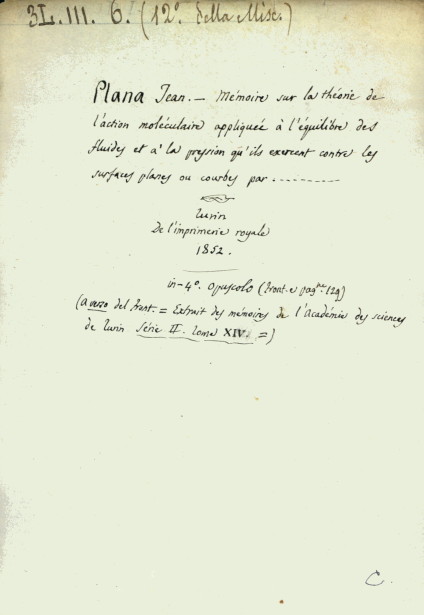 3L. III. 6. (12°. della Misc.)
Plana Jean. — Mémoire sur la théorie de
l'action moléculaire appliquée à l'équilibre des
fluides et à la pression qu'ils exercent contre les
surfaces planes ou courbes par ..........
Turin
De l'imprimerie royale
1852.
in-4°. opuscolo (front. e pag.ne 129)
(a verso del front. = Extrait des mémoires de l'Académie des sciences
de Turin Série II. Tome XIV. =)
C.